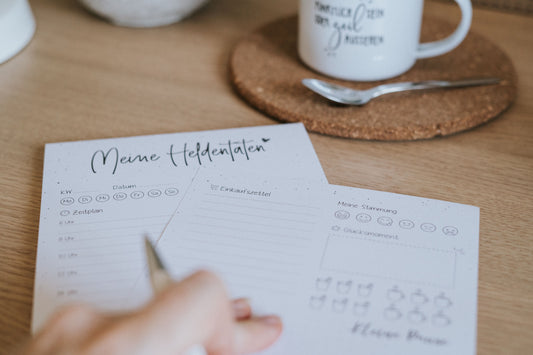 geil
Meine Heldentaten
KW Datum
Mo Di Mi Do Fr Sa So
Zeitplan
Uhr
Uhr
Uhr
Uhr
Uhr
Einkaufszettel
Meine Stimmung
Glücksmoment
Kleine Pause